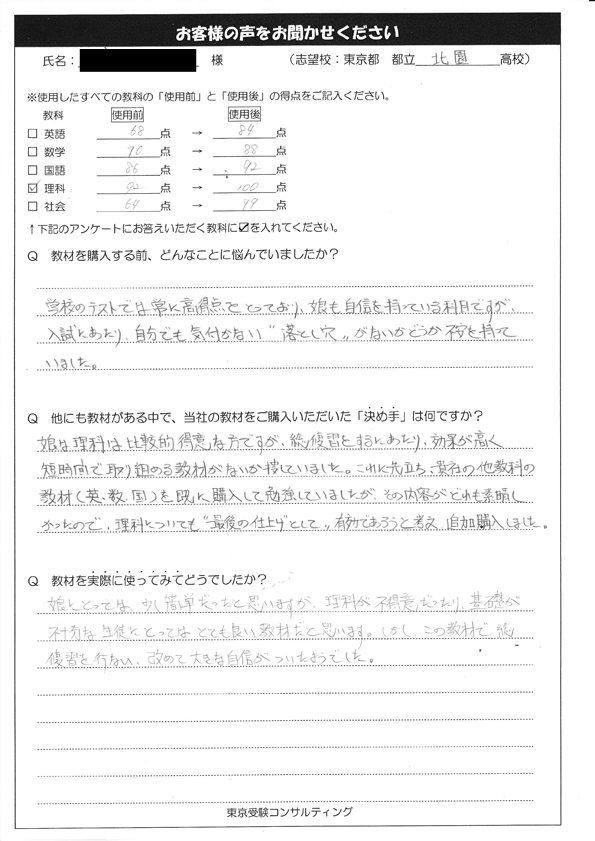 お客様の声をお聞かせください
氏名： 様 （志望校：東京都 都立 北園 高校）
※使用したすべての教科の「使用前」と「使用後」の得点をご記入ください。
教科 使用前 使用後
□ 英語 68 点 → 84 点
□ 数学 70 点 → 88 点
□ 国語 86 点 → 92 点
☑ 理科 92 点 → 100 点
□ 社会 64 点 → 79 点
↑下記のアンケートにお答えいただく教科に☑を入れてください。
Q 教材を購入する前、どんなことに悩んでいましたか？
学校のテストでは常に高得点をとっており、娘も自信を持っている科目ですが、
入試にあたり、自分でも気付かない“落とし穴„がないかどうか不安を持って
いました。
Q 他にも教材がある中で、当社の教材をご購入いただいた「決め手」は何ですか？
娘は理科は比較的得意な方ですが、総復習をするにあたり、効果が高く
短時間で取り組める教材がないか探していました。これに先立ち、貴社の他教科の
教材（英、数、国）を既に購入して勉強していましたが、その内容がどれも素晴し
かったので、理科についても“最後の仕上げとして„有効であろうと考え、追加購入しました。
Q 教材を実際に使ってみてどうでしたか？
娘にとっては、少し簡単だったと思いますが、理科が不得意だったり、基礎が
不十分な生徒にとってはとても良い教材だと思います。しかし、この教材で総
復習を行ない、改めて大きな自信がついたようでした。
東京受験コンサルティング